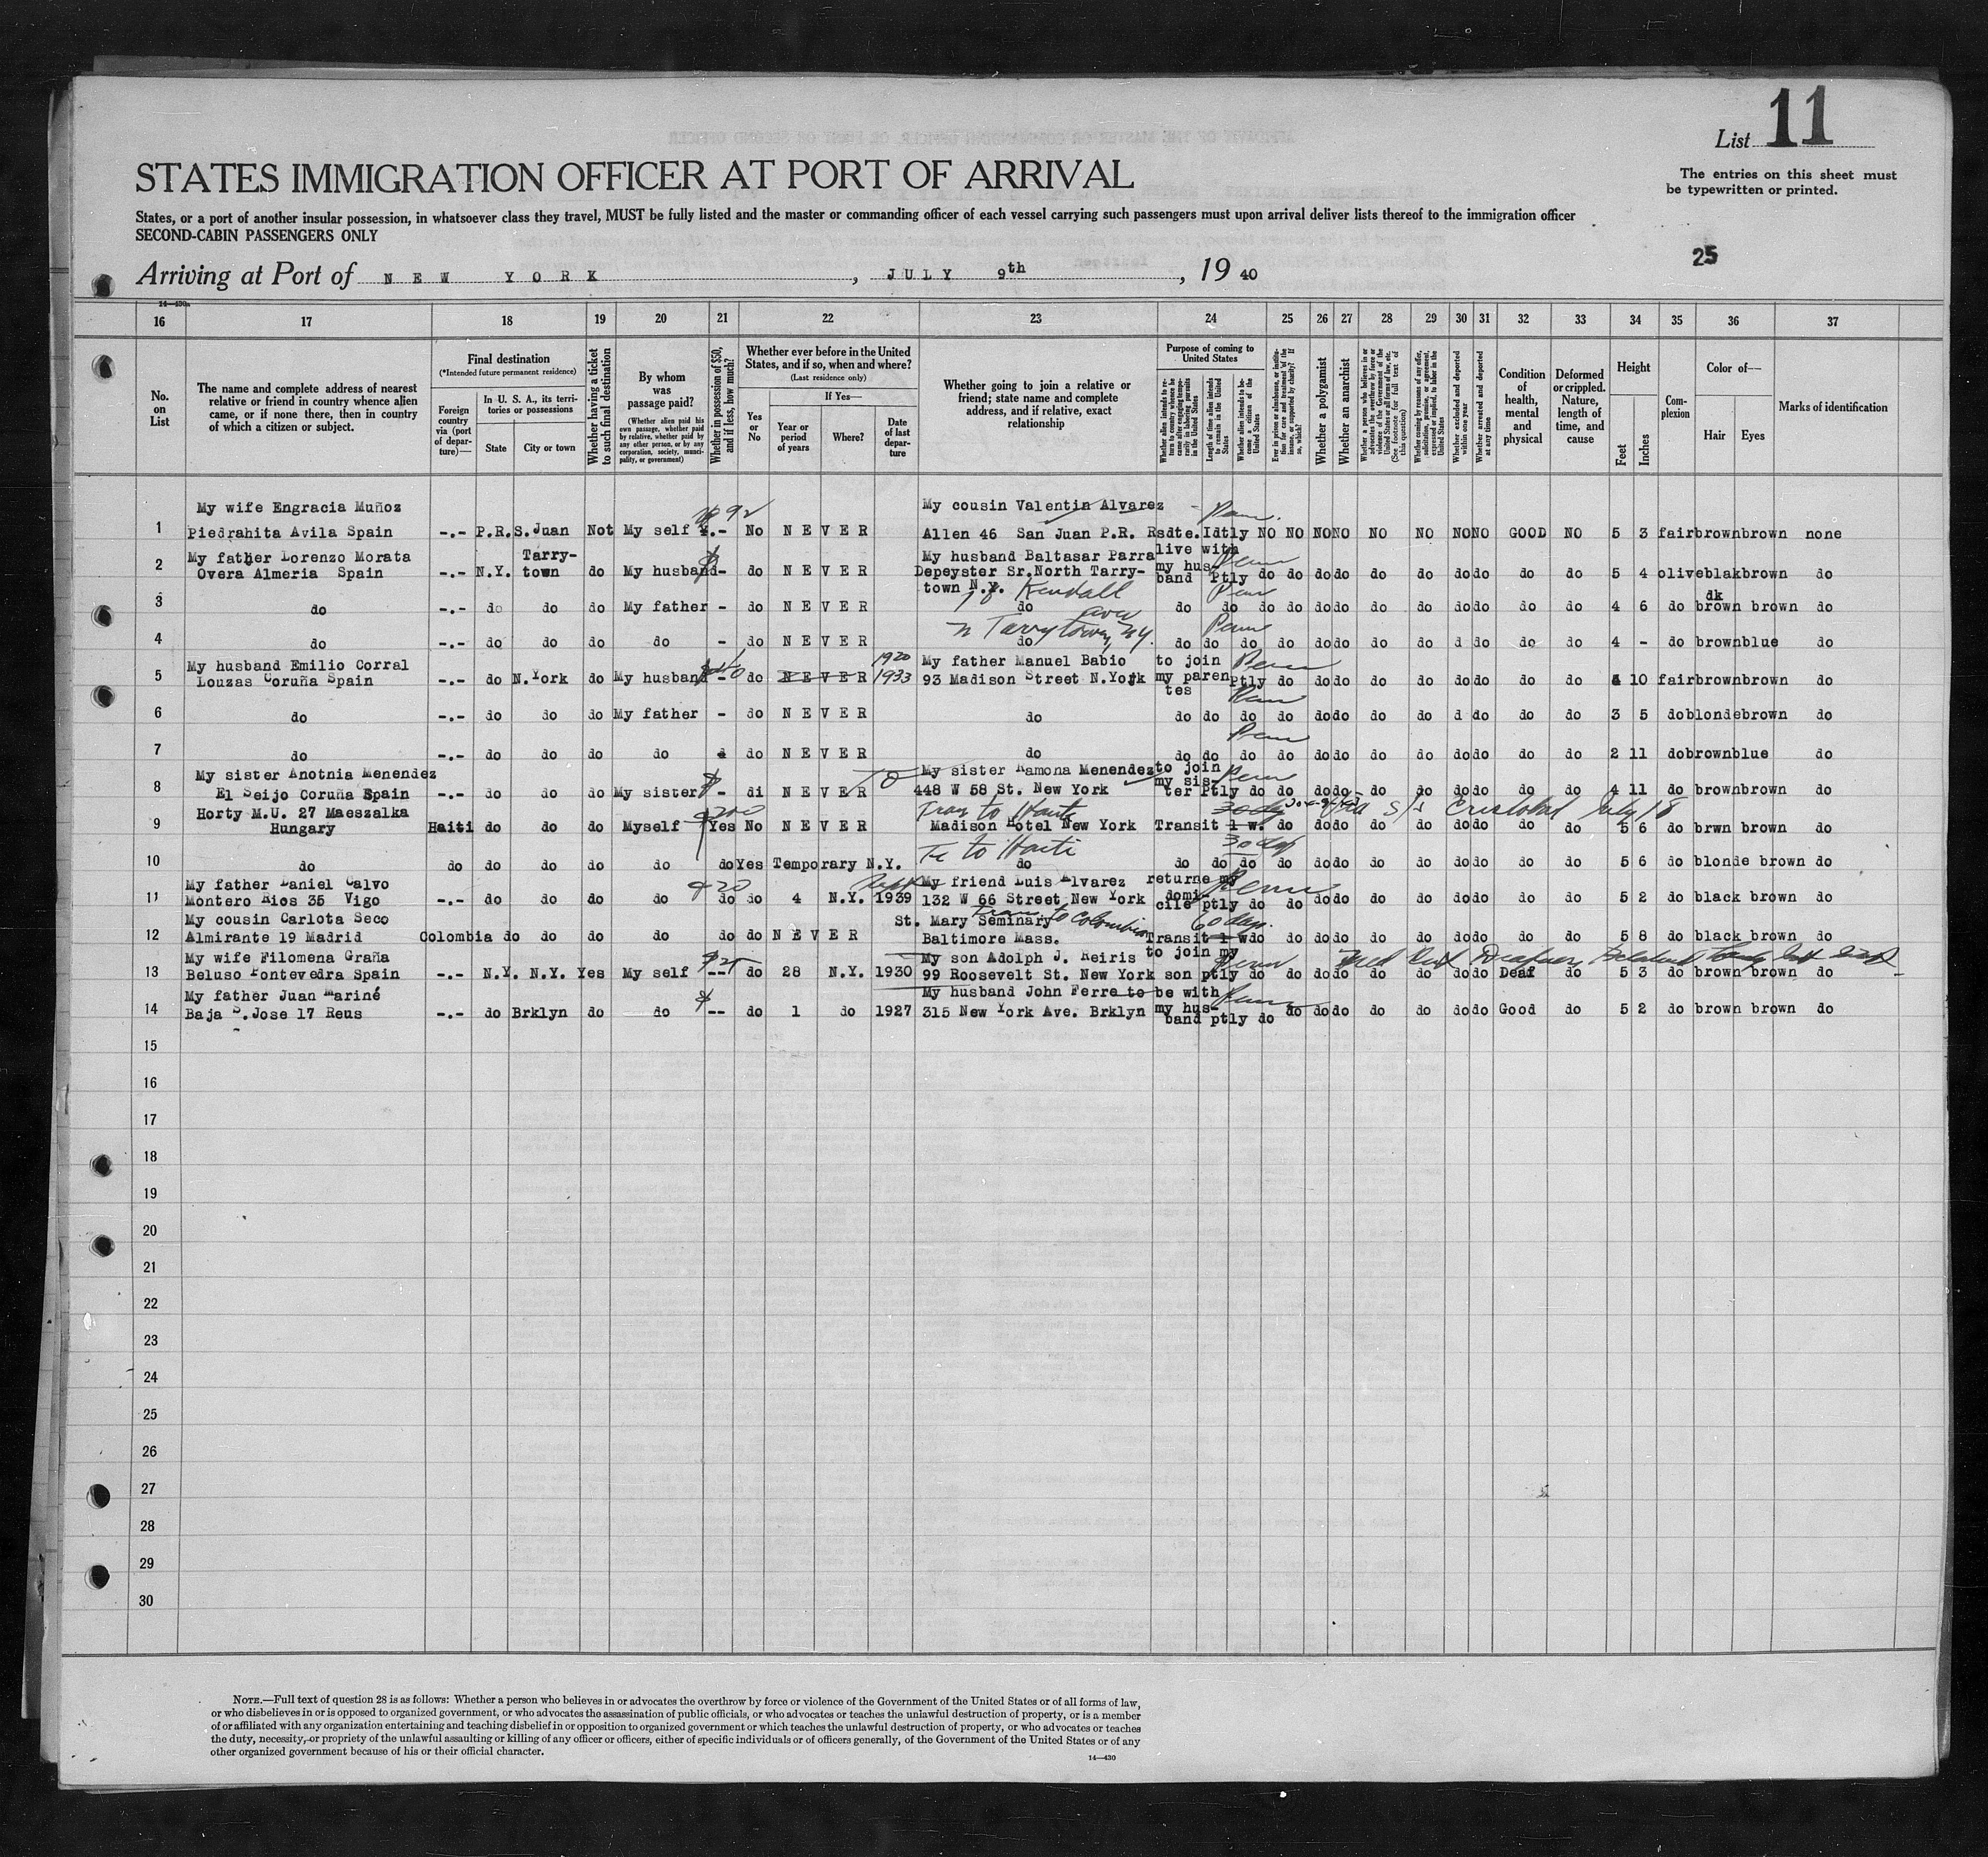 List 11
STATES IMMIGRATION OFFICER AT PORT OF ARRIVAL
The entries on this sheet must
be typewritten or printed.
States, or a port of another insular possession, in whatsoever class they travel, MUST be fully listed and the master or commanding officer of each vessel carrying such passengers must upon arrival deliver lists thereof to the immigration officer
SECOND-CABIN PASSENGERS ONLY
25
Arriving at Port of NEW YORK, JULY 9th, 1940
14—430
16 17 18 19 20 21 22 23 24 25 26 27 28 29 30 31 32 33 34 35 36 37
No. on List
The name and complete address of nearest relative or friend in country whence alien came, or if none there, then in country of which a citizen or subject.
Final destination
(*Intended future permanent residence)
Foreign country via (port of departure)—
In U. S. A., its territories or possessions
State
City or town
Whether having a ticket to such final destination
By whom was passage paid?
(Whether alien paid his own passage, whether paid by relative, whether paid by any other person, or by any corporation, society, municipality, or government)
Whether in possession of $50, and if less, how much?
Whether ever before in the United States, and if so, when and where?
(Last residence only)
Yes or No
If Yes—
Year or period of years
Where?
Date of last departure
Whether going to join a relative or friend; state name and complete address, and if relative, exact relationship
Purpose of coming to United States
Whether alien intends to return to country whence he came after engaging temporarily in laboring pursuits in the United States
Length of time alien intends to remain in the United States
Whether alien intends to become a citizen of the United States
Ever in prison or almshouse, or institution for care and treatment of the insane, or supported by charity? If so, which?
Whether a polygamist
Whether an anarchist
Whether a person who believes in or advocates the overthrow by force or violence of the Government of the United States or all forms of law, etc. (See footnote for full text of this question)
Whether coming by reasons of any offer, solicitation, promise, or agreement, expressed or implied, to labor in the United States
Whether excluded and deported within one year
Whether arrested and deported at any time
Condition of health, mental and physical
Deformed or crippled. Nature, length of time, and cause
Height
Feet
Inches
Complexion
Color of—
Hair
Eyes
Marks of identification
My wife Engracia Muñoz My cousin Valentin Alvarez
1 Piedrahita Avila Spain -.- P.R. S.Juan Not My self $92 No NEVER Allen 46 San Juan P.R. Rsdte. Idtly NO NO NO NO NO NO NO NO GOOD NO 5 3 fair brown brown none
My father Lorenzo Morata Tarry- My husband Baltasar Parra live with
2 Overa Almeria Spain -.- N.Y. town do My husband - do NEVER Depeyster Sr.North Tarry- my hus do do do do do do do do do 5 4 olive blak brown do
town N.Y. band Ptly
Kendall dk
3 do -.- do do do My father - do NEVER do do do do do do do do do do do do 4 6 do brown brown do
n Tarrytown, NY.
4 do -.- do do do do - do NEVER do do do do do do do do do d do do do 4 - do brown blue do
My husband Emilio Corral 1920 My father Manuel Babio to join Perm
5 Louzas Coruña Spain -.- do N.York do My husband - do NEVER 1933 93 Madison Street N.York my paren Ptly do do do do do do do do do do 4 10 fair brown brown do
tes
6 do -.- do do do My father - do NEVER do do do do do do do do do d do do do 3 5 do blonde brown do
7 do -.- do do do do do NEVER do do do do do do do do do do do do do 2 11 do brown blue do
My sister Anotnia Menendez My sister Ramona Menendez to join Perm
8 El Seijo Coruña Spain -.- do do do My sister $ - di NEVER 448 W 58 St. New York my sis- ter Ptly do do do do do do do do do do 4 11 do brown brown do
Horty M.U. 27 Maeszalka $200 Tran to Haiti 30 dys via S/S Cristobal July 18
9 Hungary Haiti do do do Myself Yes No NEVER Madison Hotel New York Transit 1 w. do do do do do do do do do 5 6 do brwn brown do
Tr to Haiti 30 dys
10 do do do do do do do Yes Temporary N.Y. do do do do do do do do do do do do do 5 6 do blonde brown do
My father Daniel Calvo $20 Sept My friend Luis Alvarez returne my Perm
11 Montero Rios 35 Vigo -.- do do do do do do 4 N.Y. 1939 132 W 66 Street New York domi- cile ptly do do do do do do do do do do 5 2 do black brown do
My cousin Carlota Seco St. Mary Seminary Trans to Colombia 60 days.
12 Almirante 19 Madrid Colombia do do do do do do NEVER Baltimore Mass. Transit 1 w do do do do do do do do do do 5 8 do black brown do
My wife Filomena Graña $25 My son Adolph J. Reiris to join my Perm
13 Beluso Pontevedra Spain -.- N.Y. N.Y. Yes My self -- do 28 N.Y. 1930 99 Roosevelt St. New York son ptly do do do do do do do do Deaf do 5 3 do brown brown do
My father Juan Mariné $ My husband John Ferre to be with
14 Baja S.Jose 17 Reus -.- do Brklyn do do -- do 1 do 1927 315 New York Ave. Brklyn my hus- do do do do do do do Good do 5 2 do brown brown do
band ptly do
15
16
17
18
19
20
21
22
23
24
25
26
27
28
29
30
NOTE.—Full text of question 28 is as follows: Whether a person who believes in or advocates the overthrow by force or violence of the Government of the United States or of all forms of law,
or who disbelieves in or is opposed to organized government, or who advocates the assassination of public officials, or who advocates or teaches the unlawful destruction of property, or is a member
of or affiliated with any organization entertaining and teaching disbelief in or opposition to organized government or which teaches the unlawful destruction of property, or who advocates or teaches
the duty, necessity, or propriety of the unlawful assaulting or killing of any officer or officers, either of specific individuals or of officers generally, of the Government of the United States or of any
other organized government because of his or their official character.
14—430